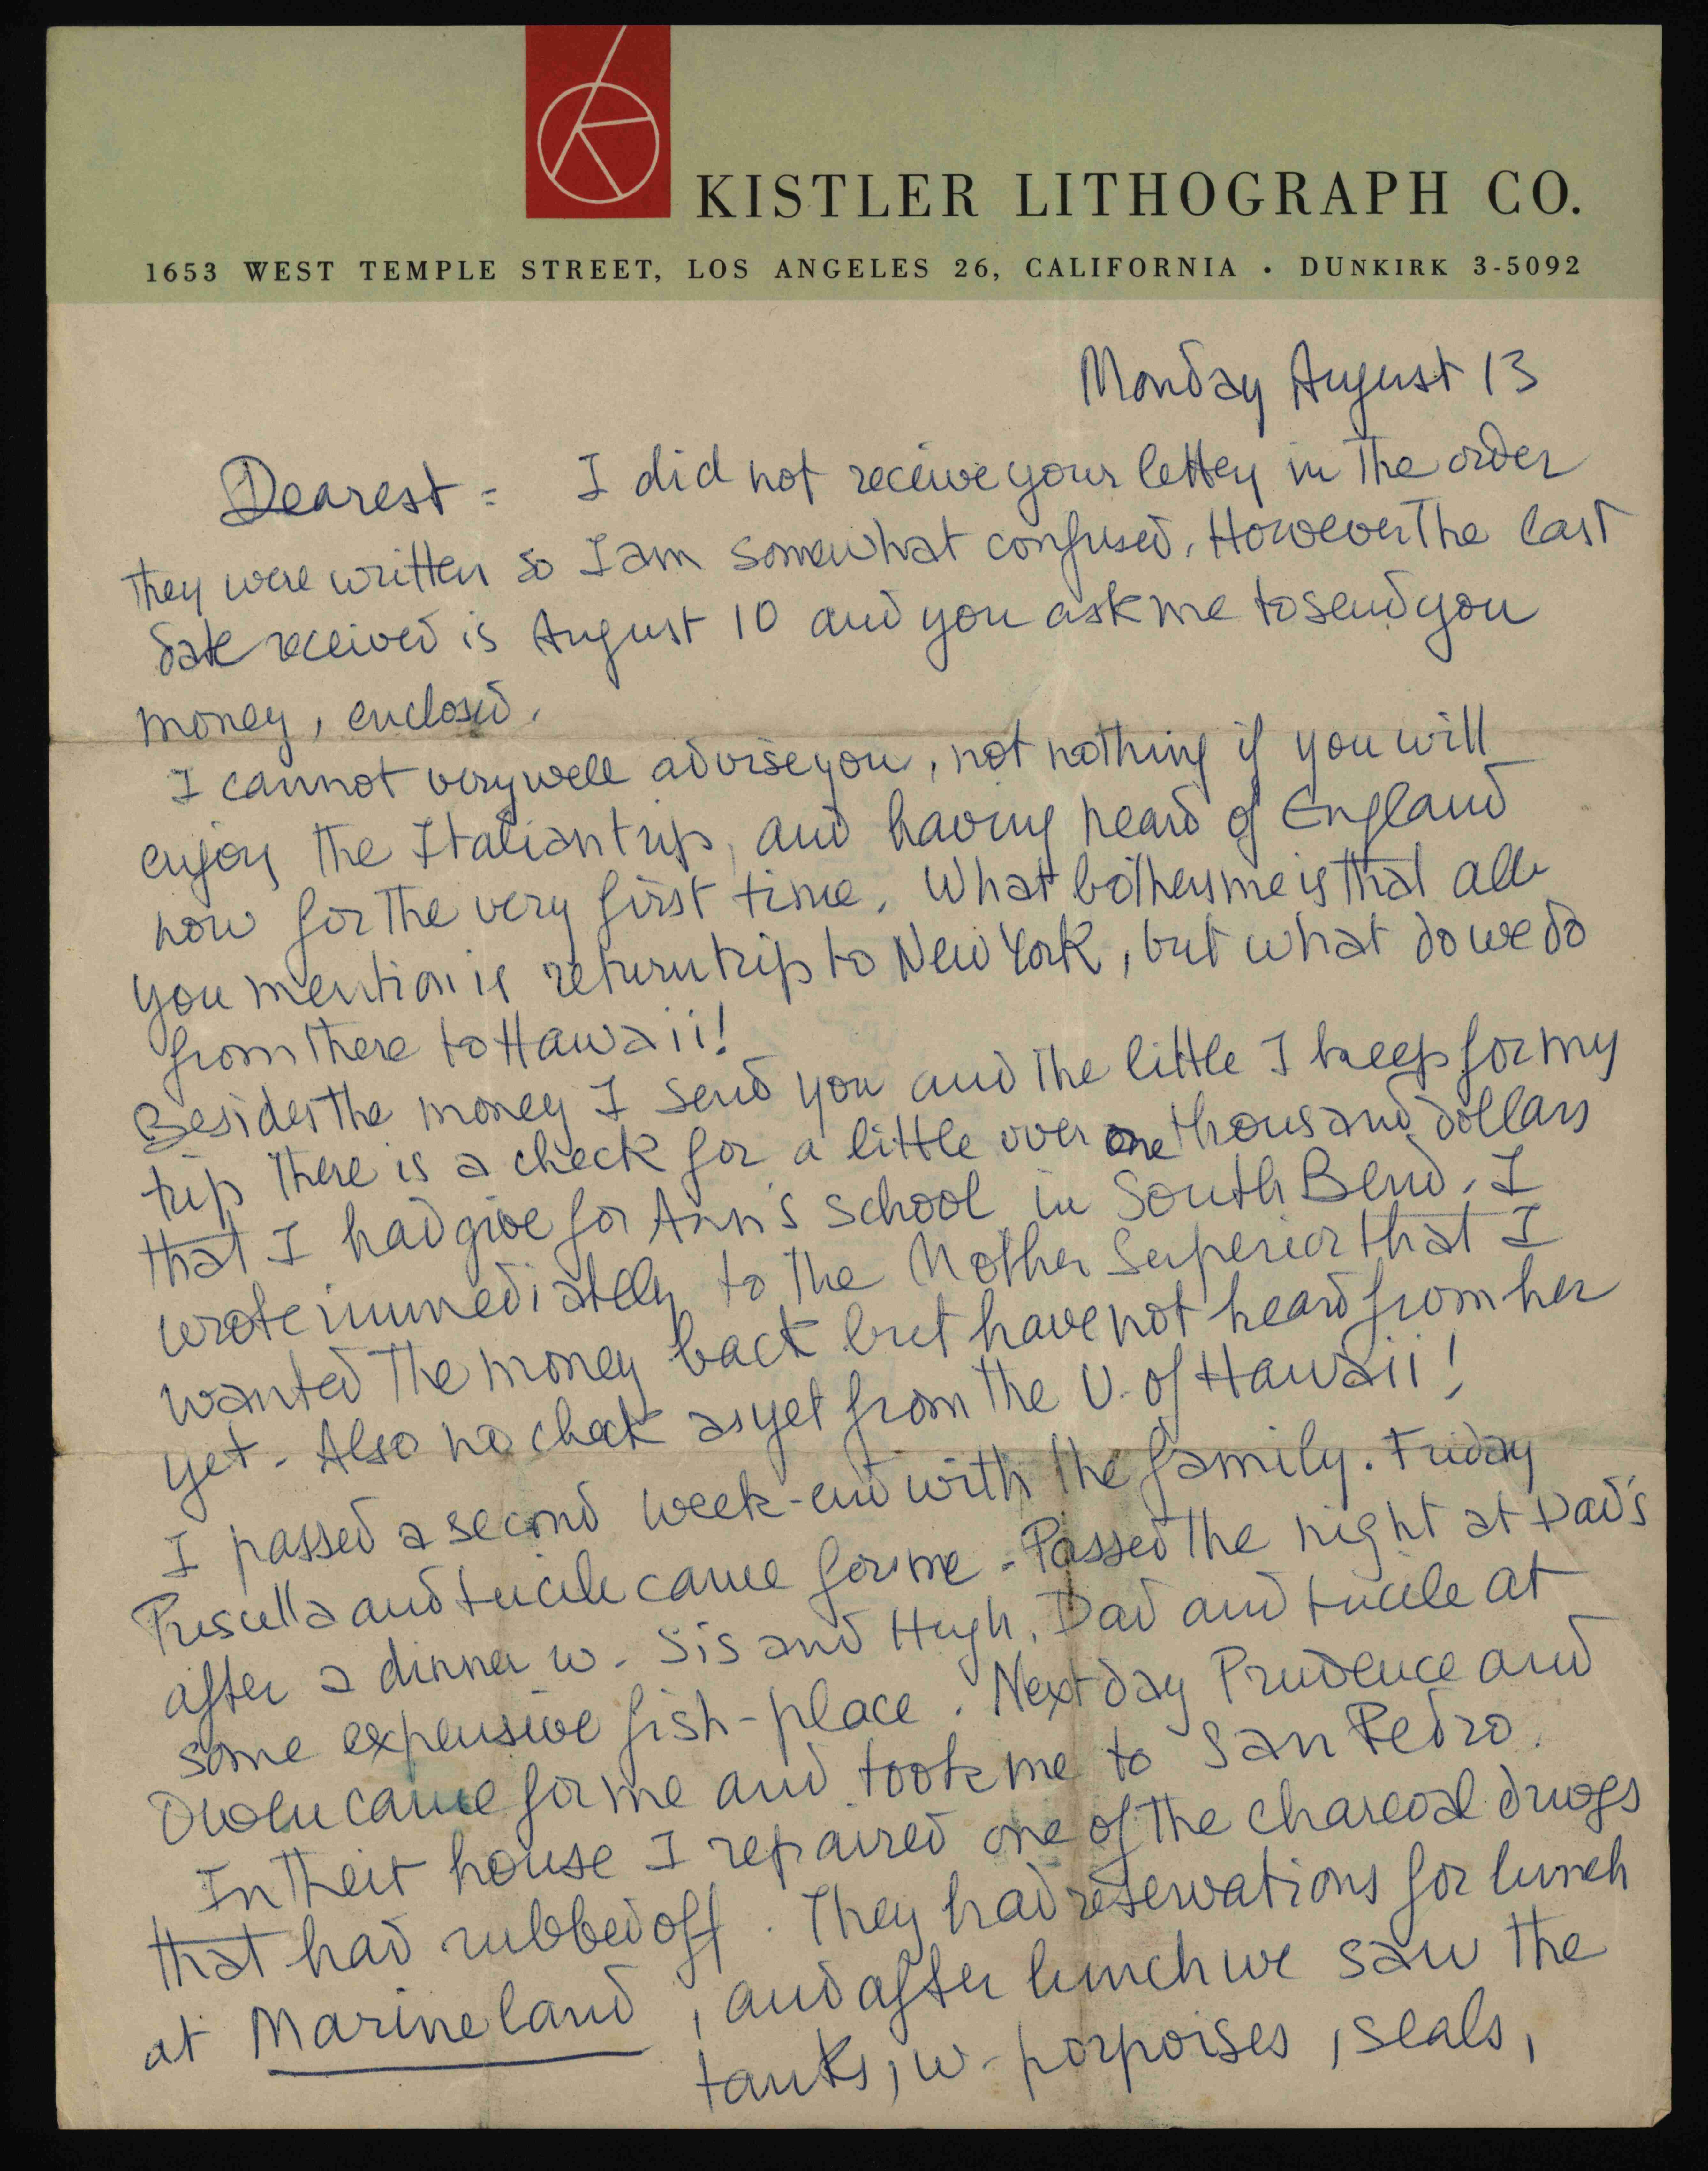 KISTLER LITHOGRAPH CO.
1653 WEST TEMPLE STREET, LOS ANGELES 26, CALIFORNIA • DUNKIRK 3-5092
Monday August 13
Dearest = I did not receive your letters in the order
they were written so I am somewhat confused. However the last
date received is August 10 and you ask me to send you
money, enclosed.
I cannot very well advise you, not nothing if you will
enjoy the Italian trip, and having heard of England
now for the very first time. What bothers me is that all
you mention is return trip to New York, but what do we do
from there to Hawaii!
Besides the money I send you and the little I keep for my
trip there is a check for a little over one thousand dollars
that I had give for Ann's school in South Bend. I
wrote immediately to the Mother Superior that I
wanted the money back but have not heard from her
yet. Also no check as yet from the U. of Hawaii!
I passed a second week-end with the family. Friday
Priscilla and Lucile came for me - Passed the night at Dad's
after a dinner w. Sis and Hugh, Dad and Lucile at
some expensive fish-place. Next day Prudence and
Owen came for me and took me to San Pedro.
In their house I repaired one of the charcoal drwgs
that had rubbed off. They had reservations for lunch
at Marineland, and after lunch we saw the
tanks, w. porpoises, seals,